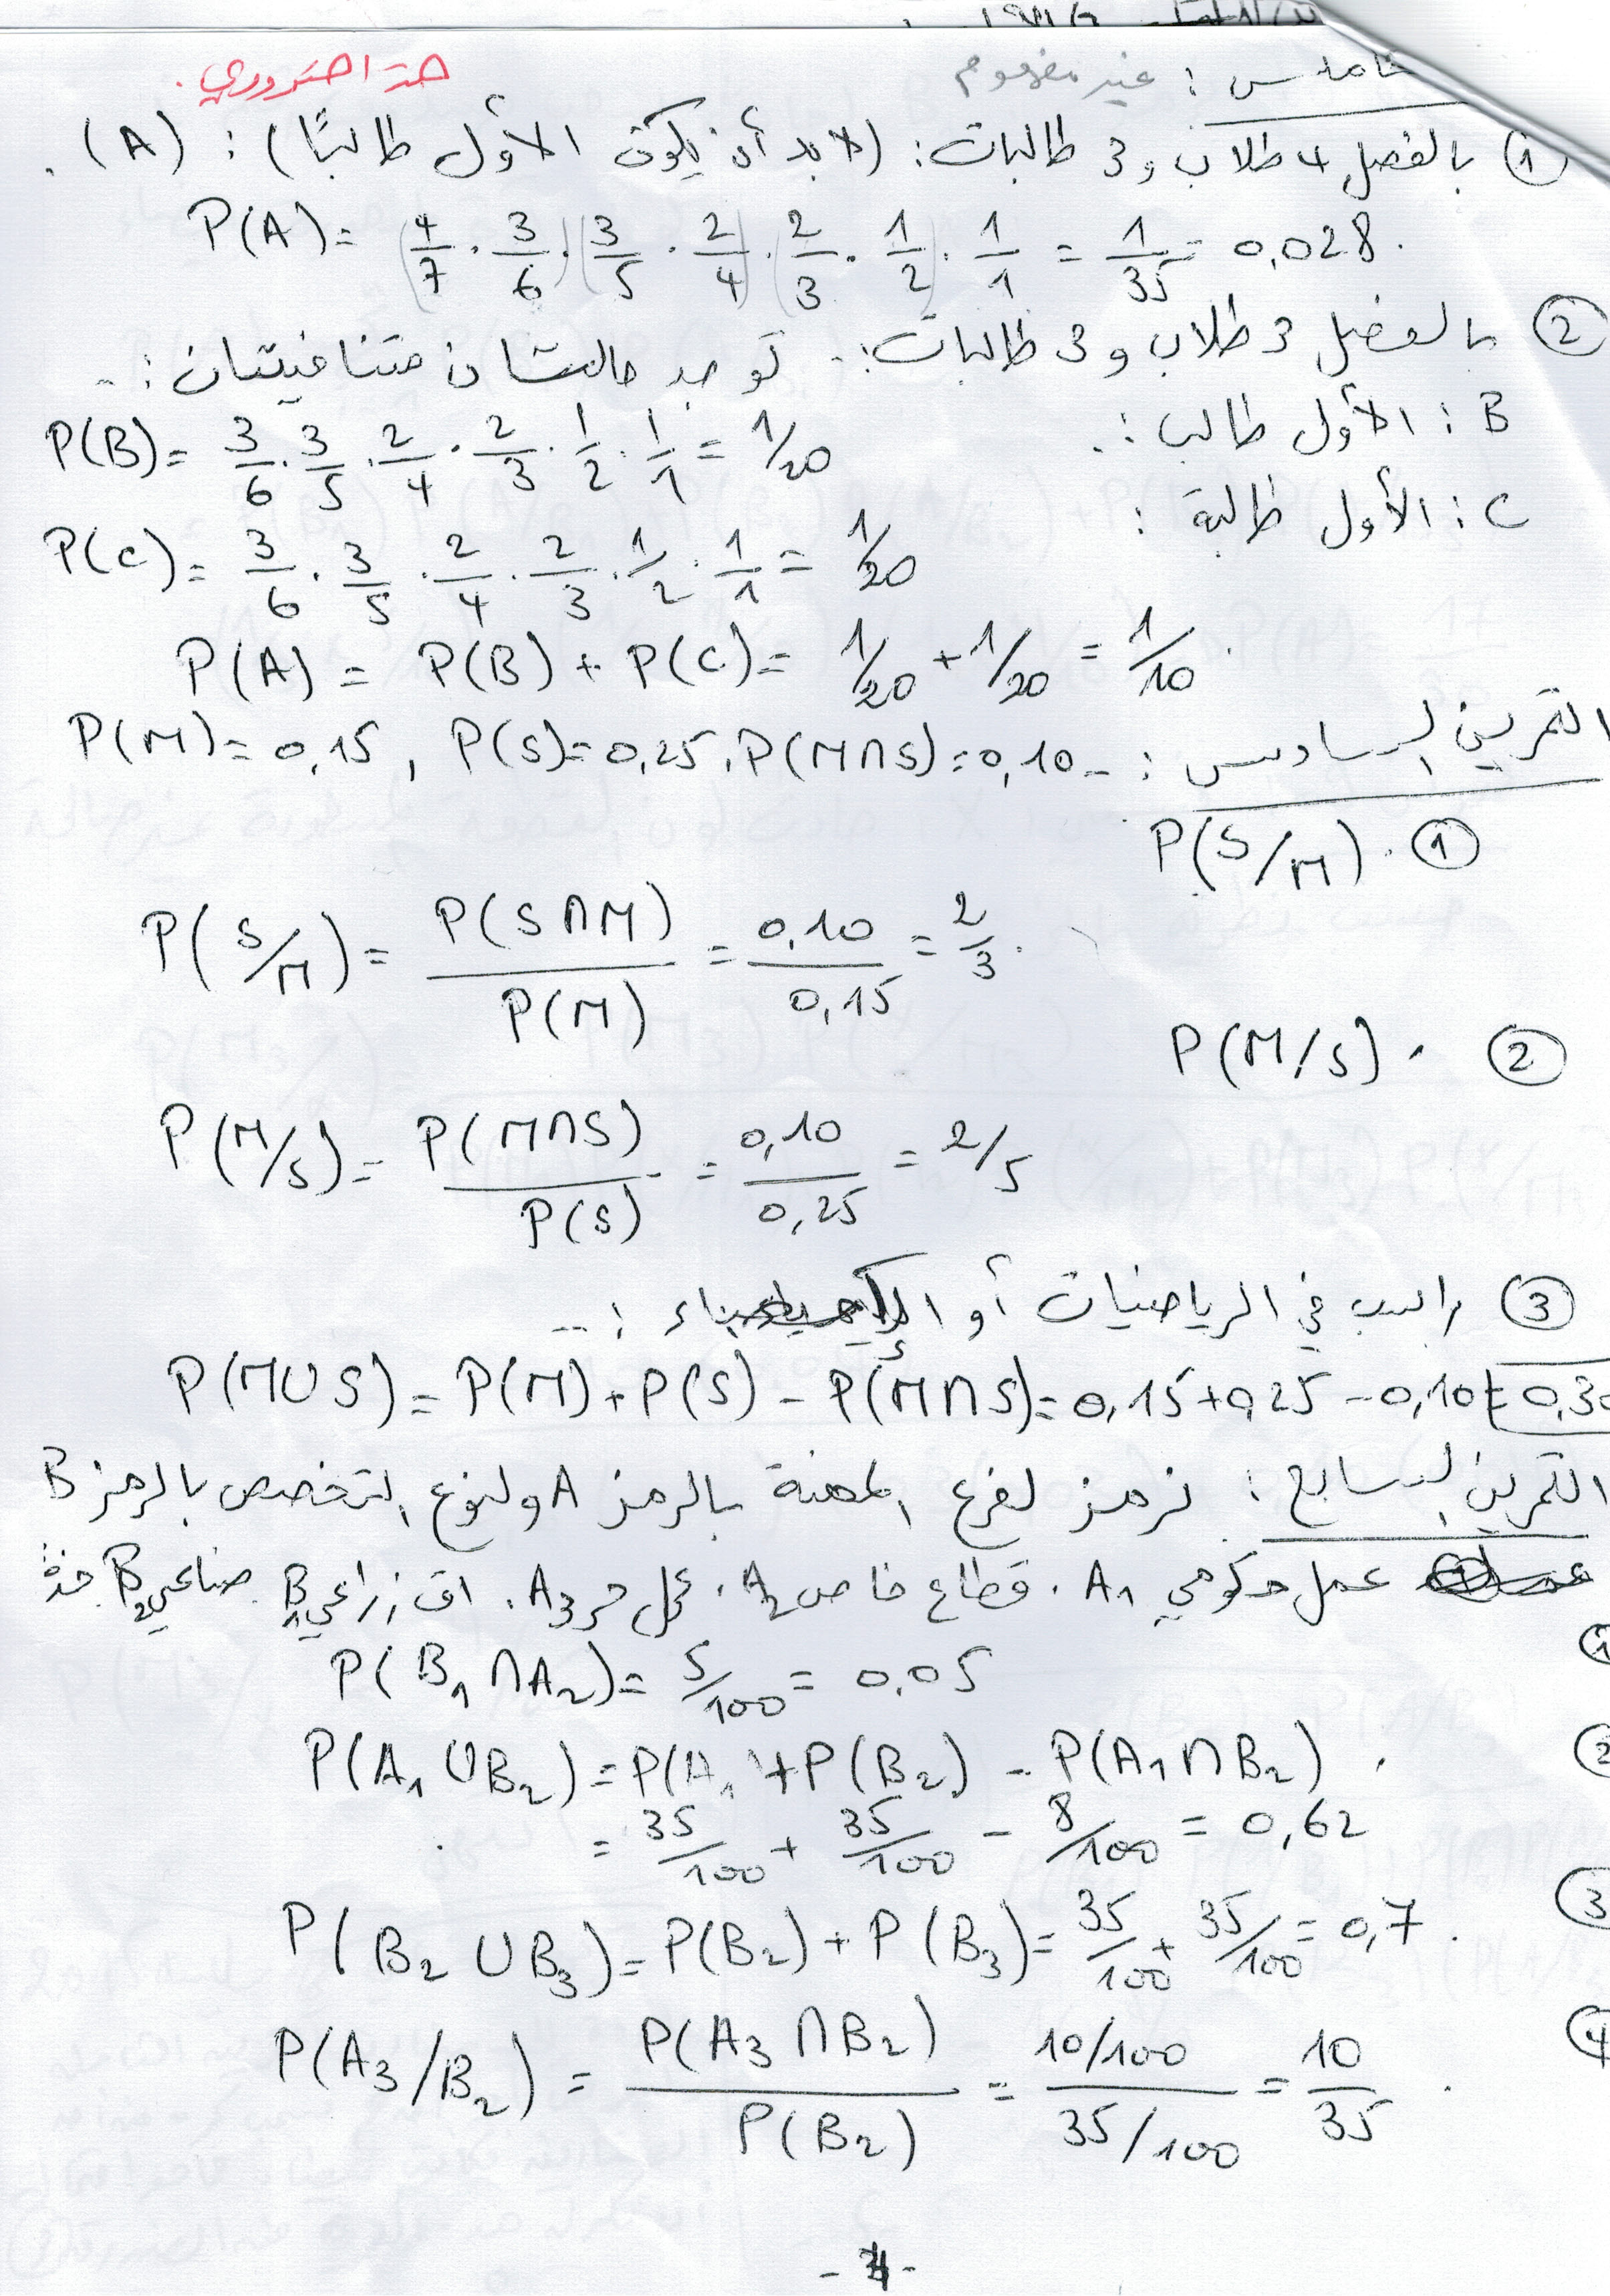 خامس : غير مفهوم
① بالفصل 4 طلاب و 3 طالبات: (لابد أن يكون الأول طالبًا) : (A) .
P(A) = (4/7 . 3/6) . (3/5 . 2/4) . (2/3 . 1/2) . 1/1 = 1/35 = 0,028 .
② بالفصل 3 طلاب و 3 طالبات: توجد حالتان متنافيتان :
B : الأول طالب :
P(B) = 3/6 . 3/5 . 2/4 . 2/3 . 1/2 . 1/1 = 1/20
C : الأول طالبة :
P(C) = 3/6 . 3/5 . 2/4 . 2/3 . 1/2 . 1/1 = 1/20
P(A) = P(B) + P(C) = 1/20 + 1/20 = 1/10 .
التمرين السادس : P(M) = 0,15 , P(S) = 0,25 , P(M∩S) = 0,10
① P(S/M) .
P(S/M) = P(S∩M) / P(M) = 0,10 / 0,15 = 2/3 .
② P(M/S) .
P(M/S) = P(M∩S) / P(S) = 0,10 / 0,25 = 2/5
③ راسب في الرياضيات أو الإحصاء :
P(M∪S) = P(M) + P(S) - P(M∩S) = 0,15 + 0,25 - 0,10 = 0,30
التمرين السابع : نرمز لفرع المهنة بالرمز A ولنوع التخصص بالرمز B
عمل حكومي A1 . قطاع خاص A2 . عمل حر A3 . زراعي B1 صناعي B2
① P(B1∩A2) = 5/100 = 0,05
② P(A1∪B2) = P(A1) + P(B2) - P(A1∩B2) .
= 35/100 + 35/100 - 8/100 = 0,62
③ P(B2∪B3) = P(B2) + P(B3) = 35/100 + 35/100 = 0,7 .
④ P(A3/B2) = P(A3∩B2) / P(B2) = 10/100 / 35/100 = 10/35 .